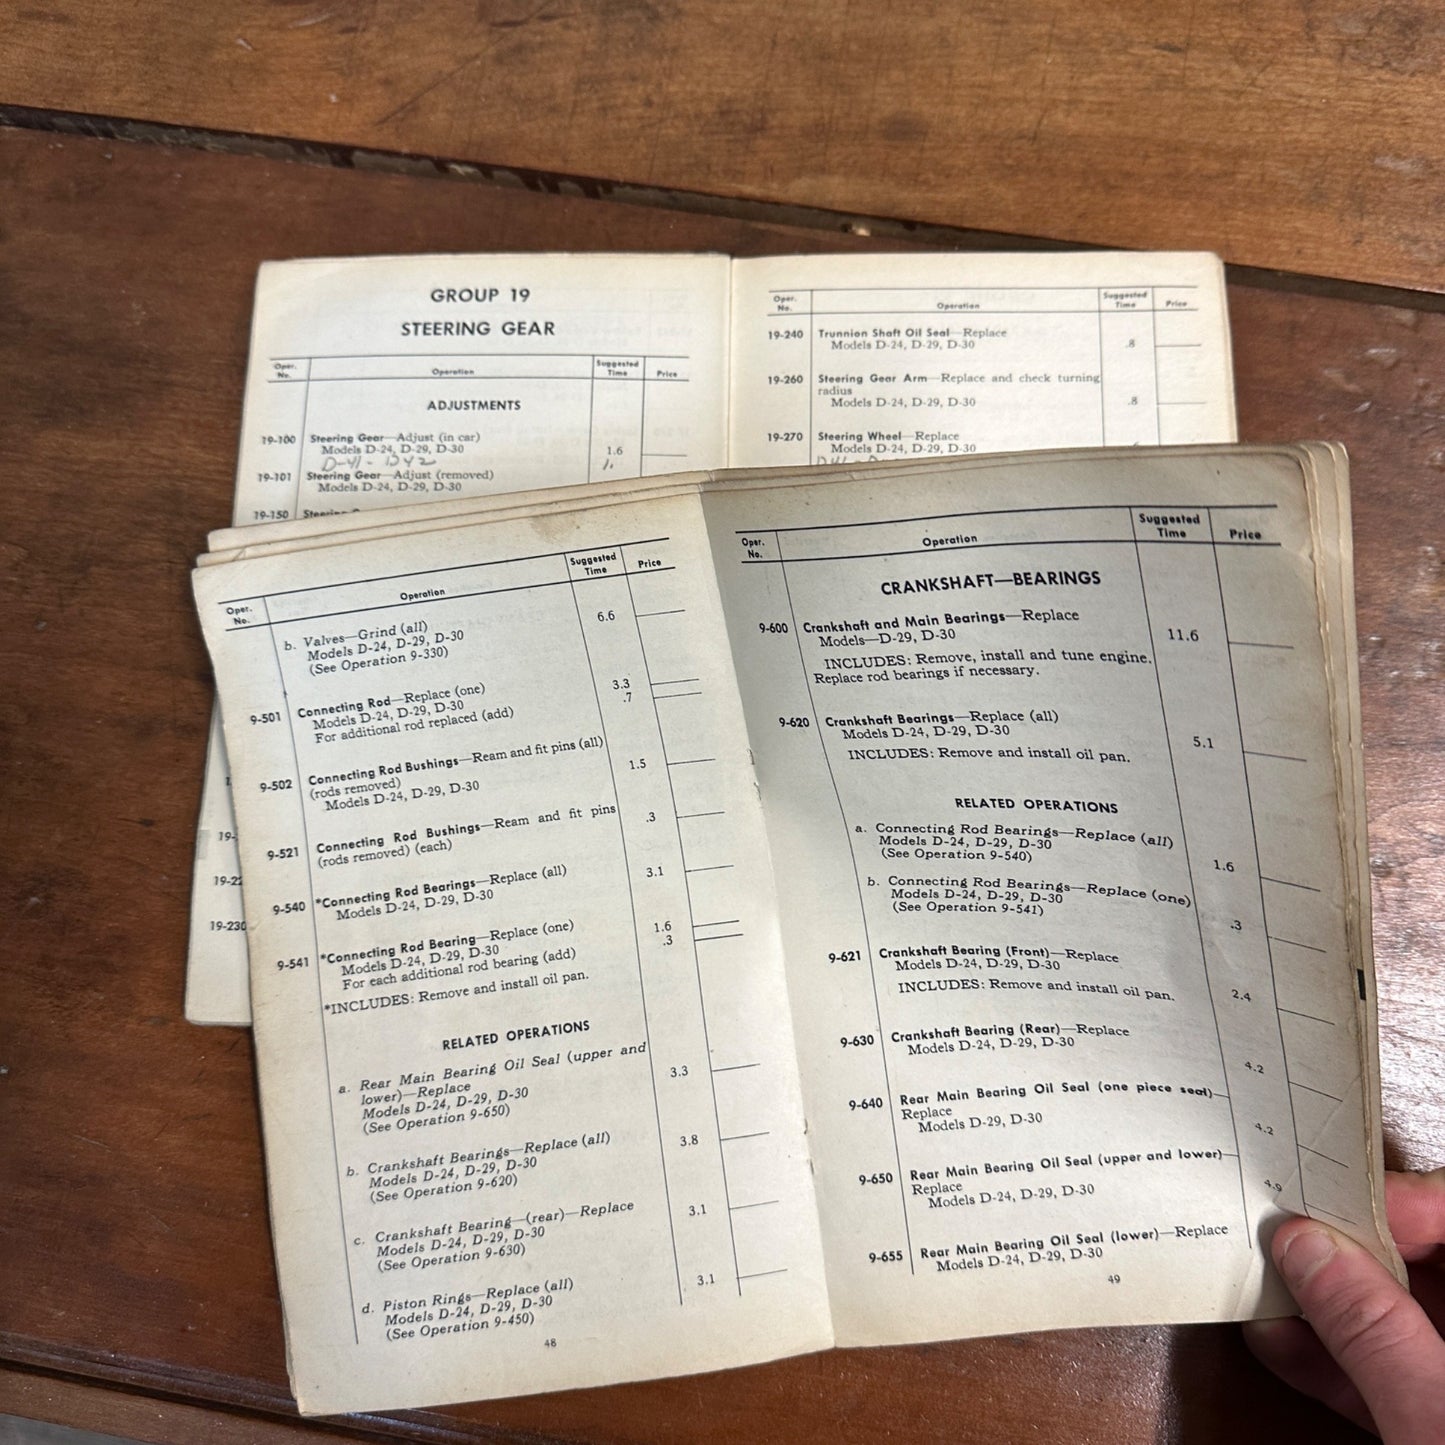 GROUP 19
STEERING GEAR
Oper. No. Operation Suggested Time Price
ADJUSTMENTS
19-100 Steering Gear—Adjust (in car)
Models D-24, D-29, D-30 1.6
D-41 - D42
19-101 Steering Gear—Adjust (removed)
Models D-24, D-29, D-30
19-150
19-230
Oper. No. Operation Suggested Time Price
19-240 Trunnion Shaft Oil Seal—Replace
Models D-24, D-29, D-30 .8
19-260 Steering Gear Arm—Replace and check turning
radius
Models D-24, D-29, D-30 .8
19-270 Steering Wheel—Replace
Models D-24, D-29, D-30
Oper. No. Operation Suggested Time Price
b. Valves—Grind (all) 6.6
Models D-24, D-29, D-30
(See Operation 9-330)
9-501 Connecting Rod—Replace (one) 3.3
Models D-24, D-29, D-30 .7
For additional rod replaced (add)
9-502 Connecting Rod Bushings—Ream and fit pins (all)
(rods removed) 1.5
Models D-24, D-29, D-30
9-521 Connecting Rod Bushings—Ream and fit pins
(rods removed) (each) .3
9-540 *Connecting Rod Bearings—Replace (all) 3.1
Models D-24, D-29, D-30
9-541 *Connecting Rod Bearing—Replace (one) 1.6
Models D-24, D-29, D-30 .3
For each additional rod bearing (add)
*INCLUDES: Remove and install oil pan.
RELATED OPERATIONS
a. Rear Main Bearing Oil Seal (upper and
lower)—Replace 3.3
Models D-24, D-29, D-30
(See Operation 9-650)
b. Crankshaft Bearings—Replace (all) 3.8
Models D-24, D-29, D-30
(See Operation 9-620)
c. Crankshaft Bearing—(rear)—Replace 3.1
Models D-24, D-29, D-30
(See Operation 9-630)
d. Piston Rings—Replace (all) 3.1
Models D-24, D-29, D-30
(See Operation 9-450)
48
Oper. No. Operation Suggested Time Price
CRANKSHAFT—BEARINGS
9-600 Crankshaft and Main Bearings—Replace
Models—D-29, D-30 11.6
INCLUDES: Remove, install and tune engine.
Replace rod bearings if necessary.
9-620 Crankshaft Bearings—Replace (all)
Models D-24, D-29, D-30 5.1
INCLUDES: Remove and install oil pan.
RELATED OPERATIONS
a. Connecting Rod Bearings—Replace (all)
Models D-24, D-29, D-30
(See Operation 9-540) 1.6
b. Connecting Rod Bearings—Replace (one)
Models D-24, D-29, D-30
(See Operation 9-541) .3
9-621 Crankshaft Bearing (Front)—Replace
Models D-24, D-29, D-30
INCLUDES: Remove and install oil pan. 2.4
9-630 Crankshaft Bearing (Rear)—Replace
Models D-24, D-29, D-30 4.2
9-640 Rear Main Bearing Oil Seal (one piece seal)—
Replace
Models D-29, D-30 4.2
9-650 Rear Main Bearing Oil Seal (upper and lower)—
Replace
Models D-24, D-29, D-30 4.9
9-655 Rear Main Bearing Oil Seal (lower)—Replace
Models D-24, D-29, D-30
49